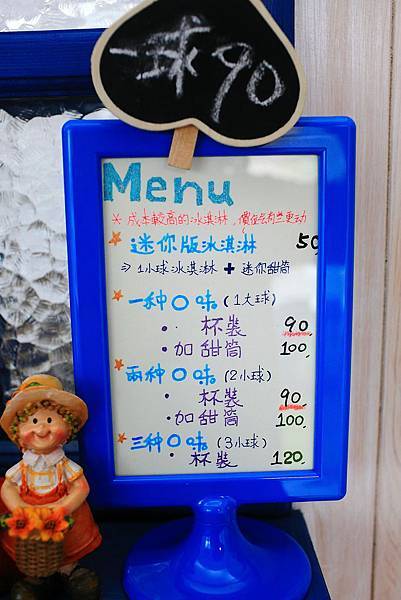 一球90
Menu
※成本較高的冰淇淋,價位會有些更动
迷你版冰淇淋 50
⇒1小球冰淇淋+迷你甜筒
一种口味(1大球)
·杯裝 90
·加甜筒 100.
兩种口味(2小球)
·杯裝 90
·加甜筒 100.
三种口味(3小球)
·杯裝 120.